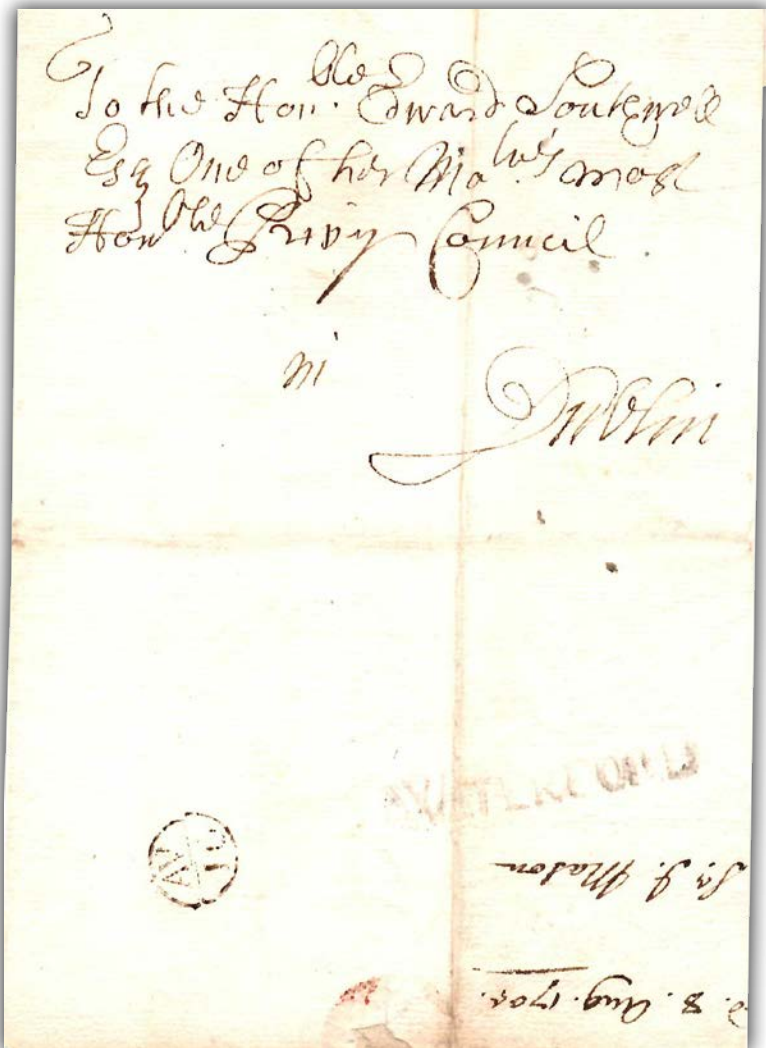 To the Hon.ble Edward Southwell
Esq One of her Ma.ties most
Hon.ble Privy Council
in Dublin
WATERFORD
AV
Sr. J. Mason
8. Aug. 170